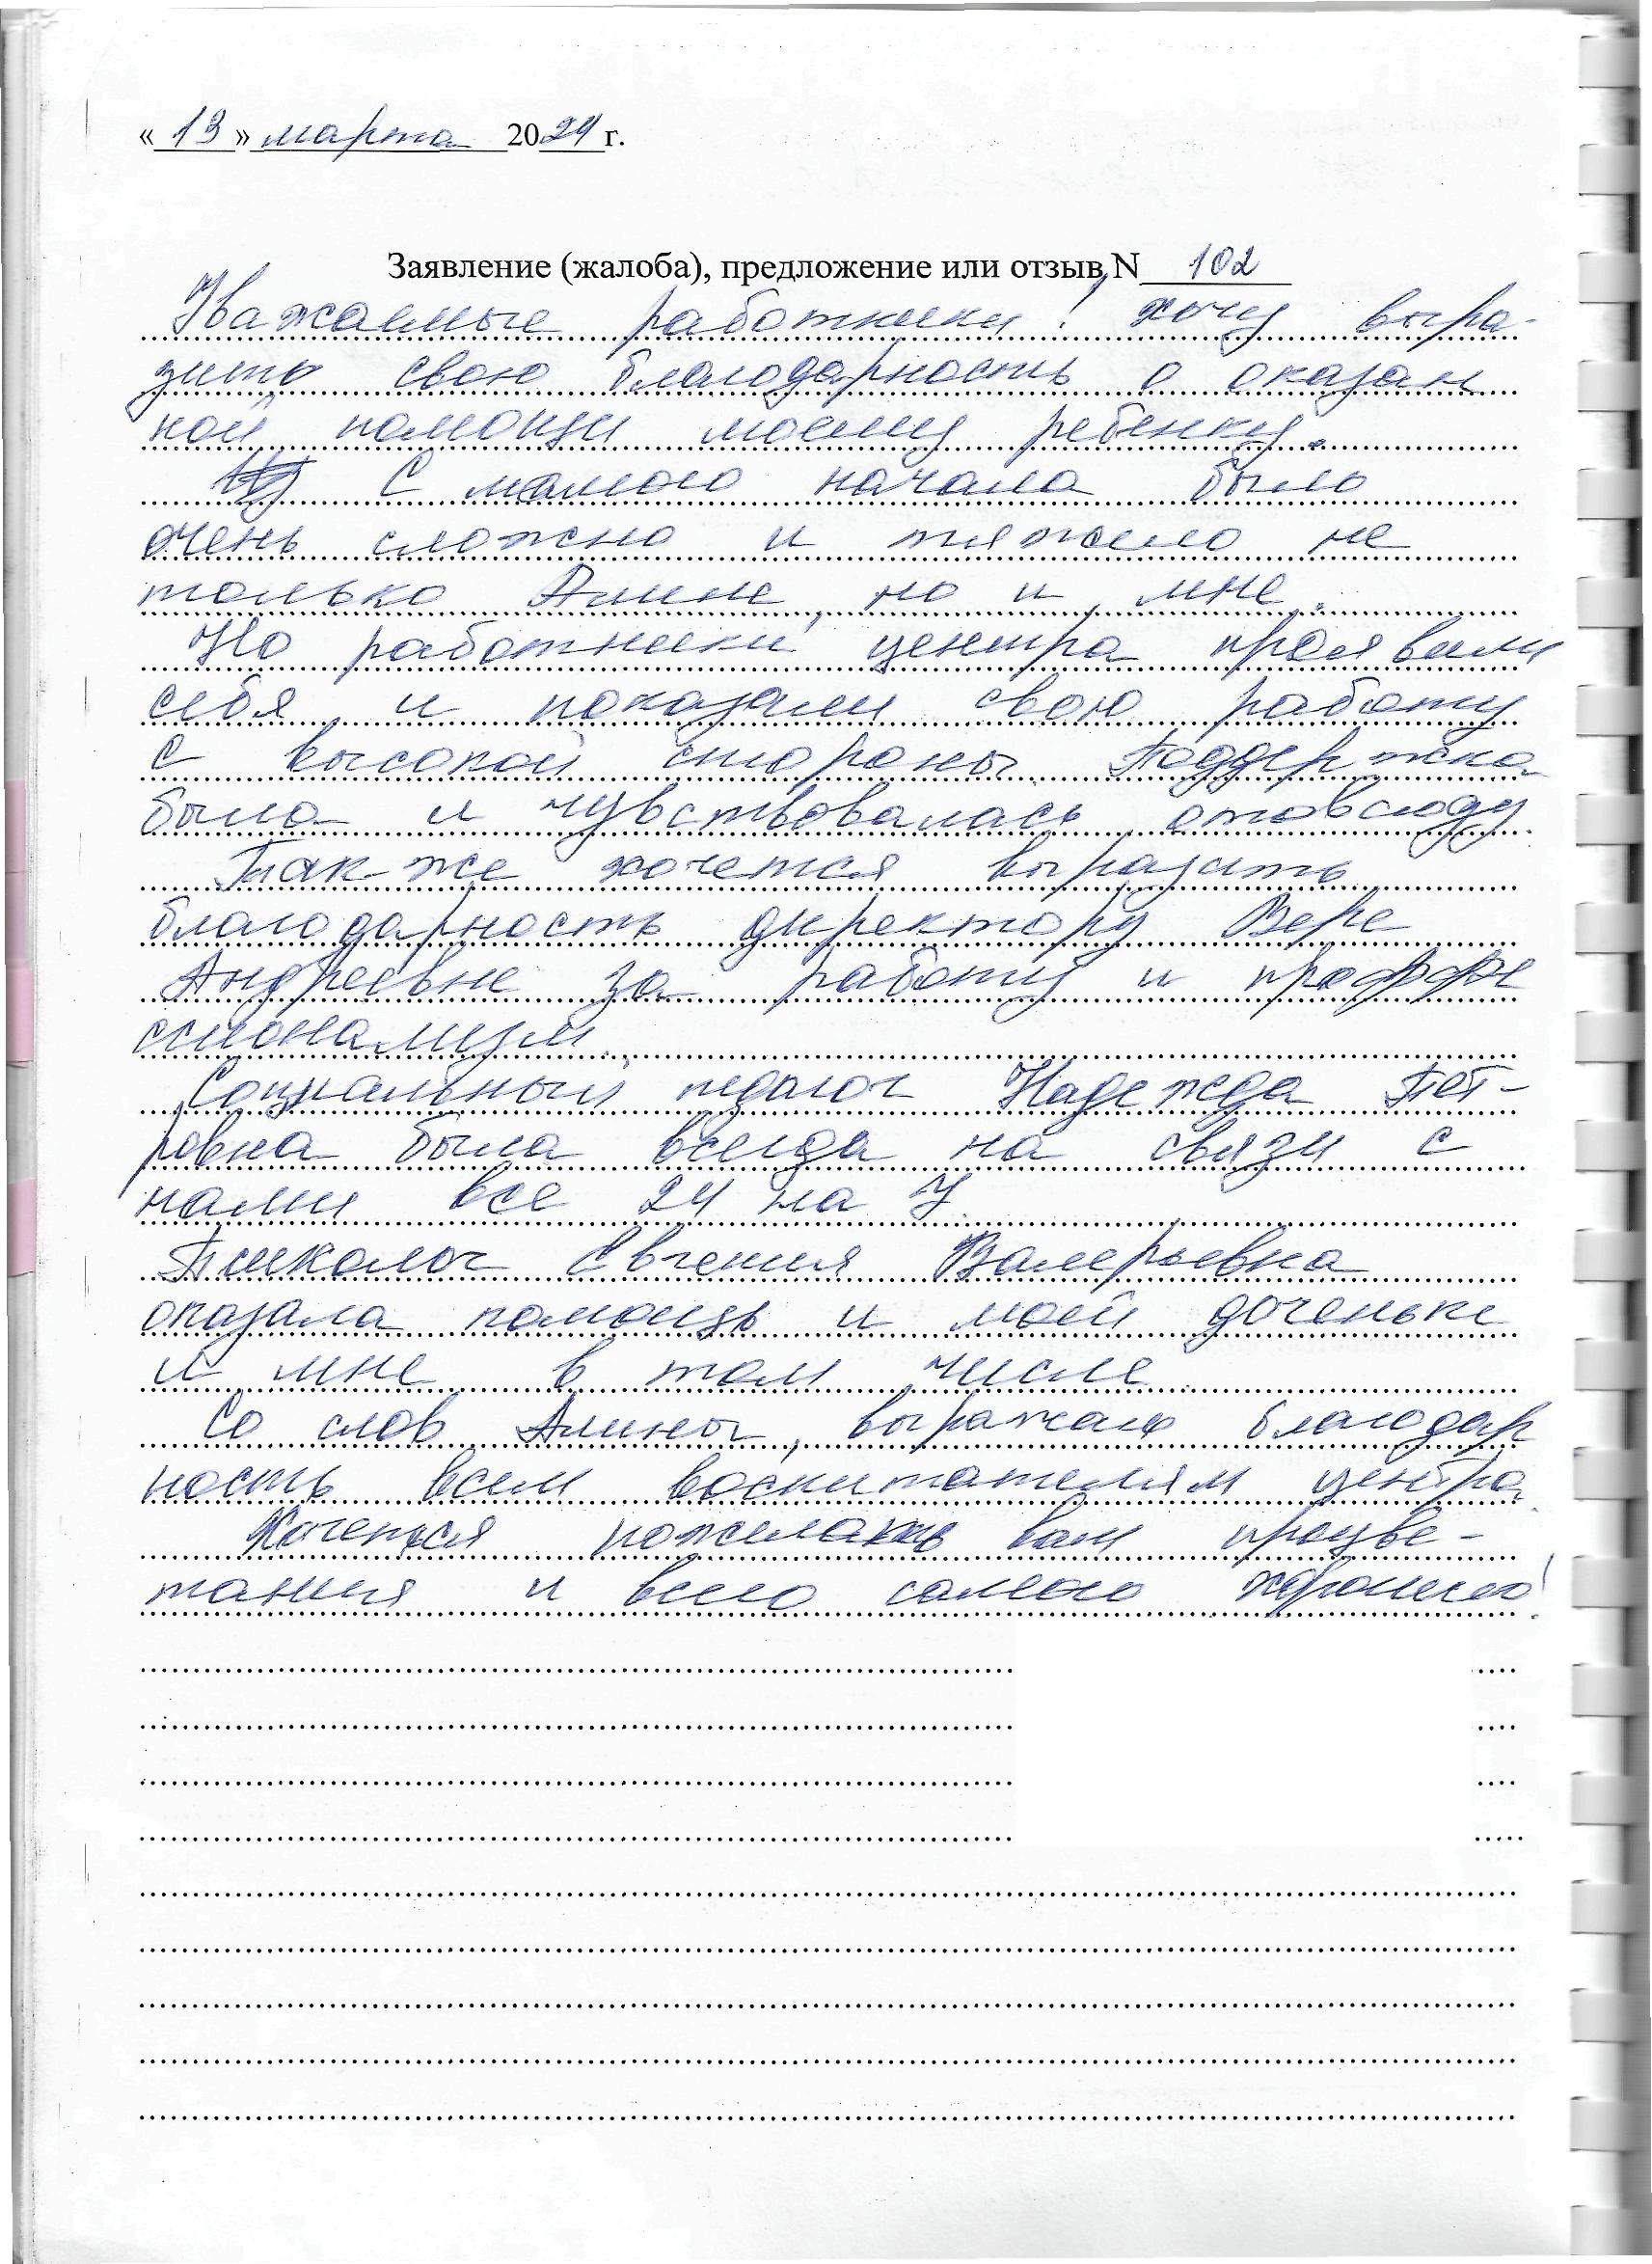 « 13 » марта 2024 г.
Заявление (жалоба), предложение или отзыв N 102
Уважаемые работники! хочу выра-
зить свою благодарность о оказан
ной помощи моему ребенку.
С самого начала было
очень сложно и тяжело не
только Алине, но и мне.
Но работники центра проявили
себя и показали свою работу
с высокой стороны. Поддержка
была и чувствовалась отовсюду.
Так-же хочется выразить
благодарность директору Вере
Андреевне за работу и проффе
ссионализм.
Социальный педагог Надежда Пет-
ровна была всегда на связи с
нами все 24 на 7.
Психолог Евгения Валерьевна
оказала помощь и моей доченьке
и мне в том числе.
Со слов Алины, выражаю благодар
ность всем воспитателям центра.
Хочется пожелать вам процве-
тания и всего самого хорошего!